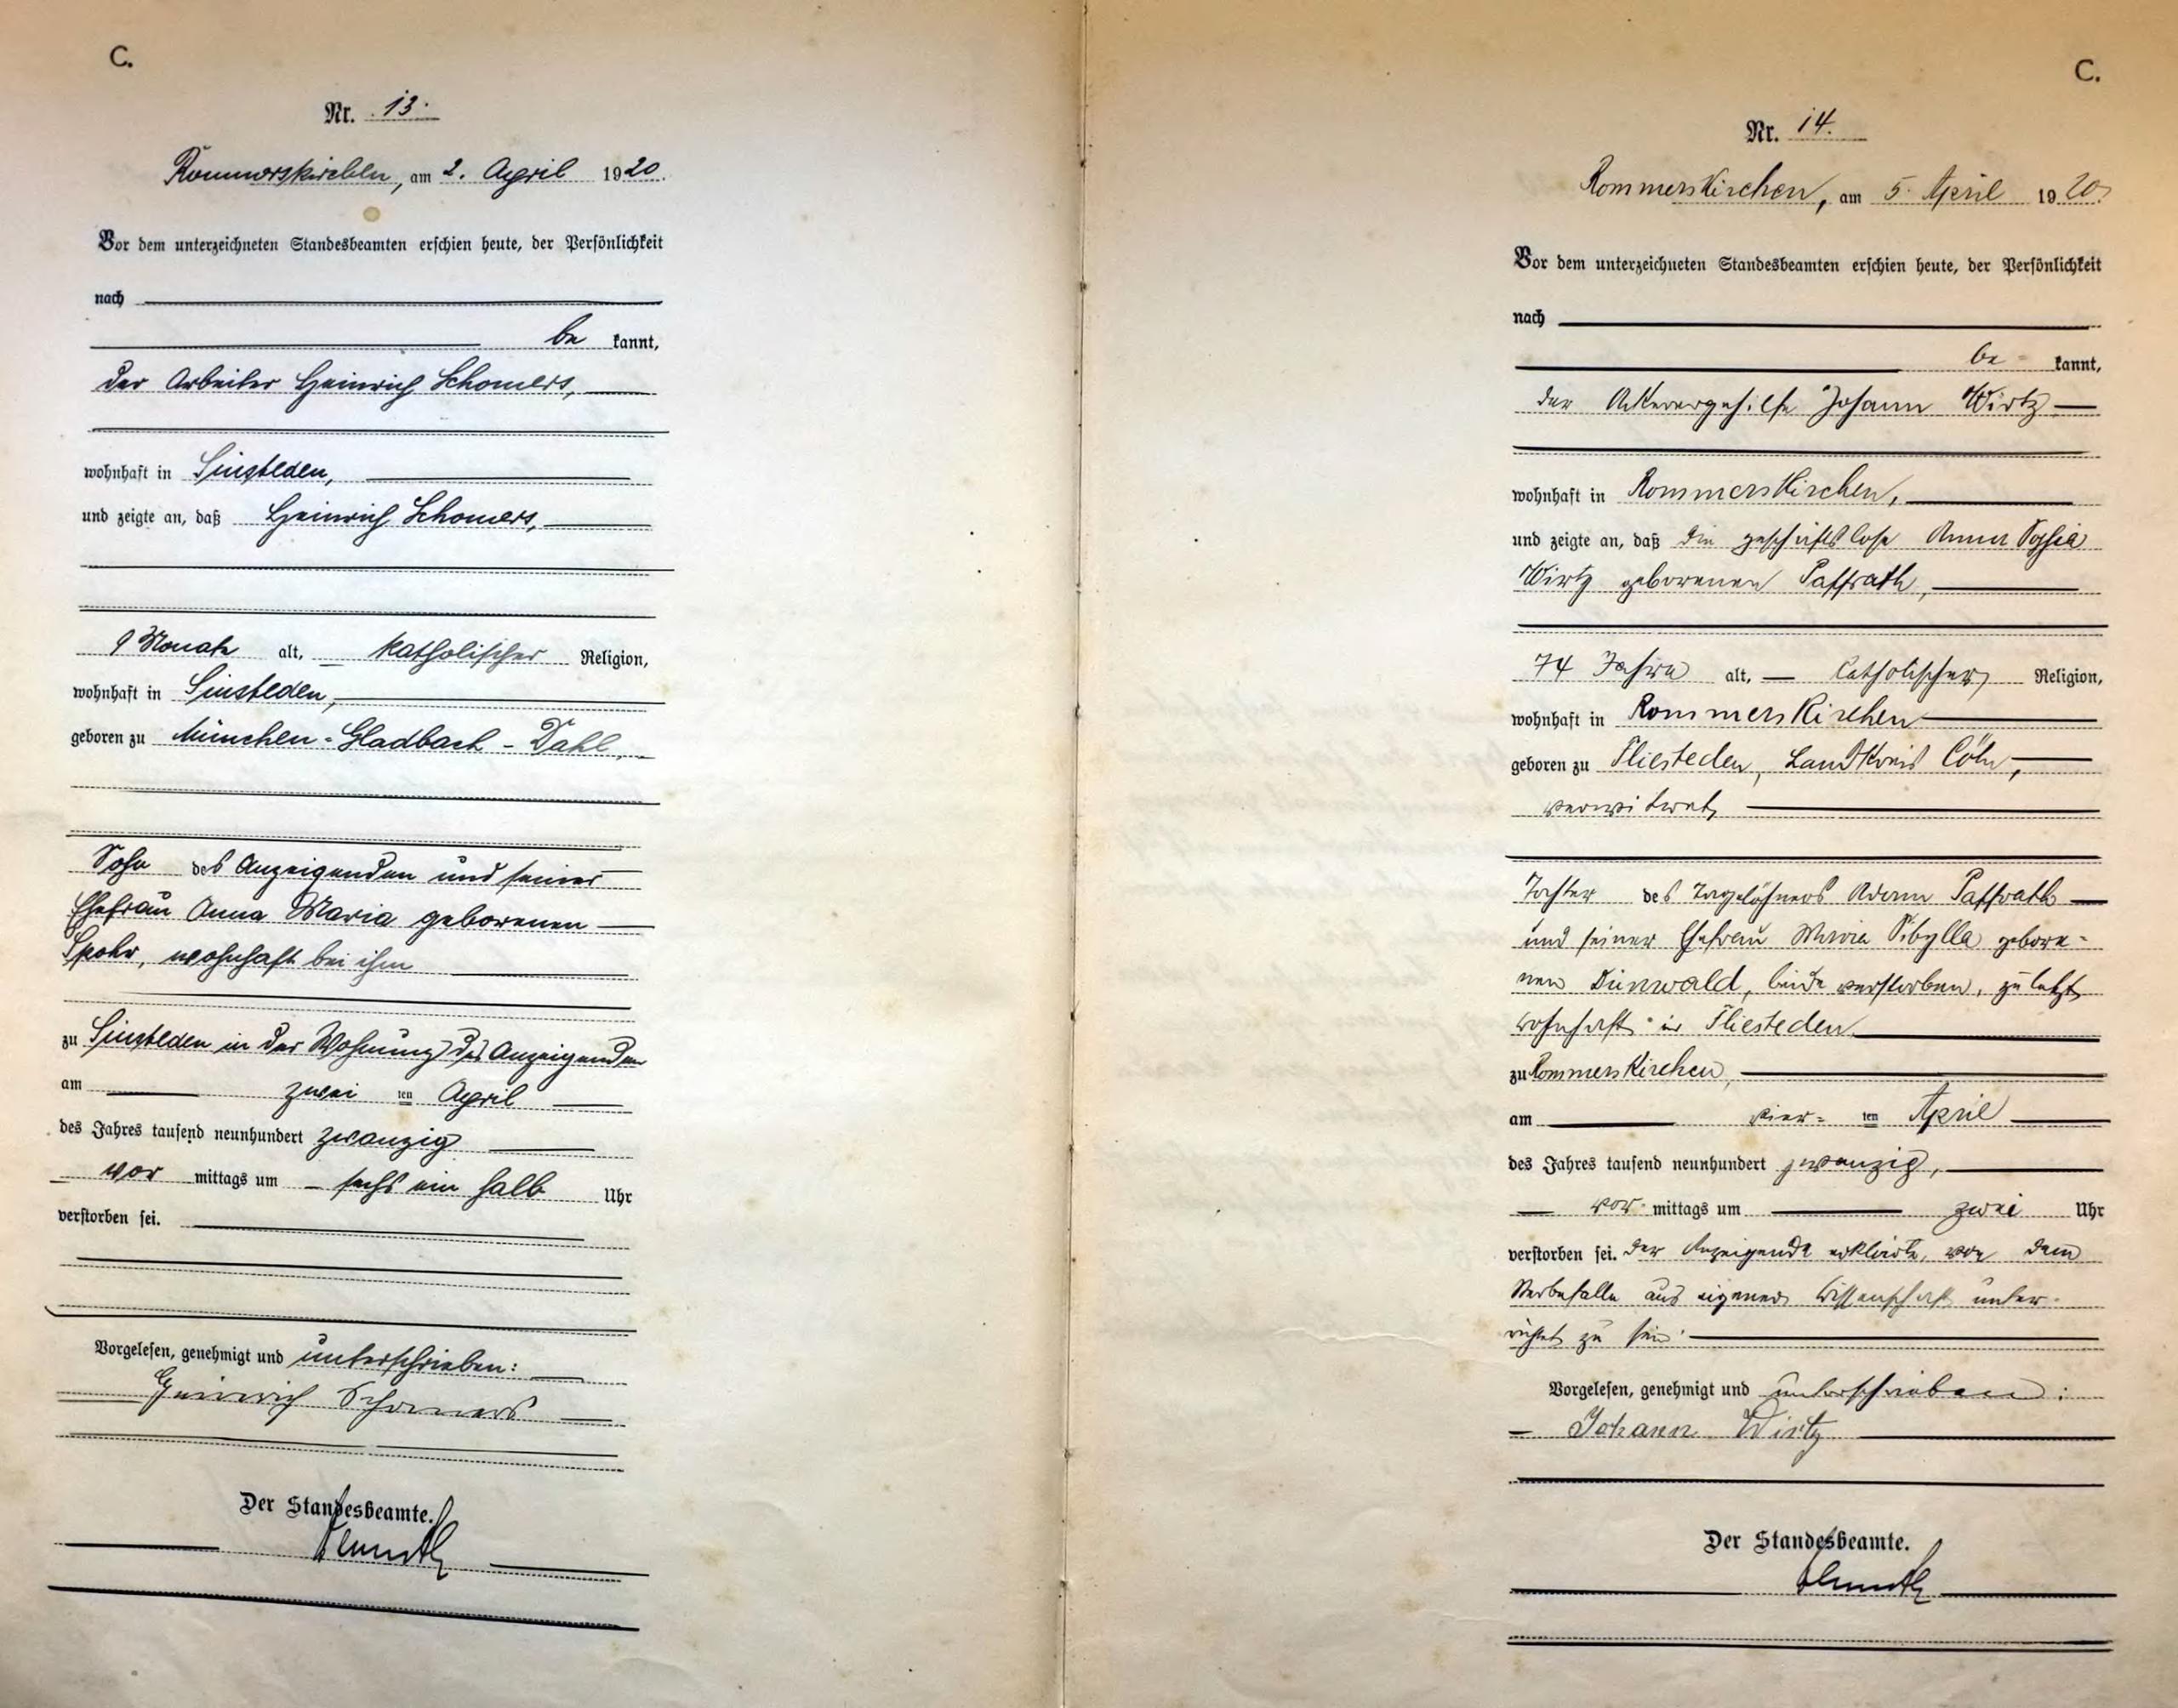 C.
Nr. 13.
Rommerskirchen, am 2. April 1920.
Vor dem unterzeichneten Standesbeamten erschien heute, der Persönlichkeit
nach
be kannt,
der Arbeiter Heinrich Schomers,
wohnhaft in Sinsteden,
und zeigte an, daß Heinrich Schomers,
9 Monate alt, katholischer Religion,
wohnhaft in Sinsteden,
geboren zu München-Gladbach-Dahl,
Sohn des Anzeigenden und seiner
Ehefrau Anna Maria geborenen
Spohr, wohnhaft bei ihm
zu Sinsteden in der Wohnung des Anzeigenden
am zwei ten April
des Jahres tausend neunhundert zwanzig
vor mittags um sechs ein halb Uhr
verstorben sei.
Vorgelesen, genehmigt und unterschrieben:
Heinrich Schomers
Der Standesbeamte.
C.
Nr. 14.
Rommerskirchen, am 5. April 1920.
Vor dem unterzeichneten Standesbeamten erschien heute, der Persönlichkeit
nach
be kannt,
der Ackerergehilfe Johann Wirtz
wohnhaft in Rommerskirchen,
und zeigte an, daß die geschäftslose Anna Sofia
Wirtz geborenen Paffrath,
74 Jahre alt, katholischer Religion,
wohnhaft in Rommerskirchen
geboren zu Fliesteden, Landkreis Cöln,
verwitwet,
Tochter des Tagelöhners Adam Paffrath
und seiner Ehefrau Maria Sibylla gebore-
nen Dünwald, beide verstorben, zuletzt
wohnhaft in Fliesteden
zu Rommerskirchen,
am vier- ten April
des Jahres tausend neunhundert zwanzig,
vor mittags um zwei Uhr
verstorben sei. Der Anzeigende erklärte, von dem
Sterbefalle aus eigener Wissenschaft unter-
richtet zu sein.
Vorgelesen, genehmigt und unterschrieben:
Johann Wirtz
Der Standesbeamte.